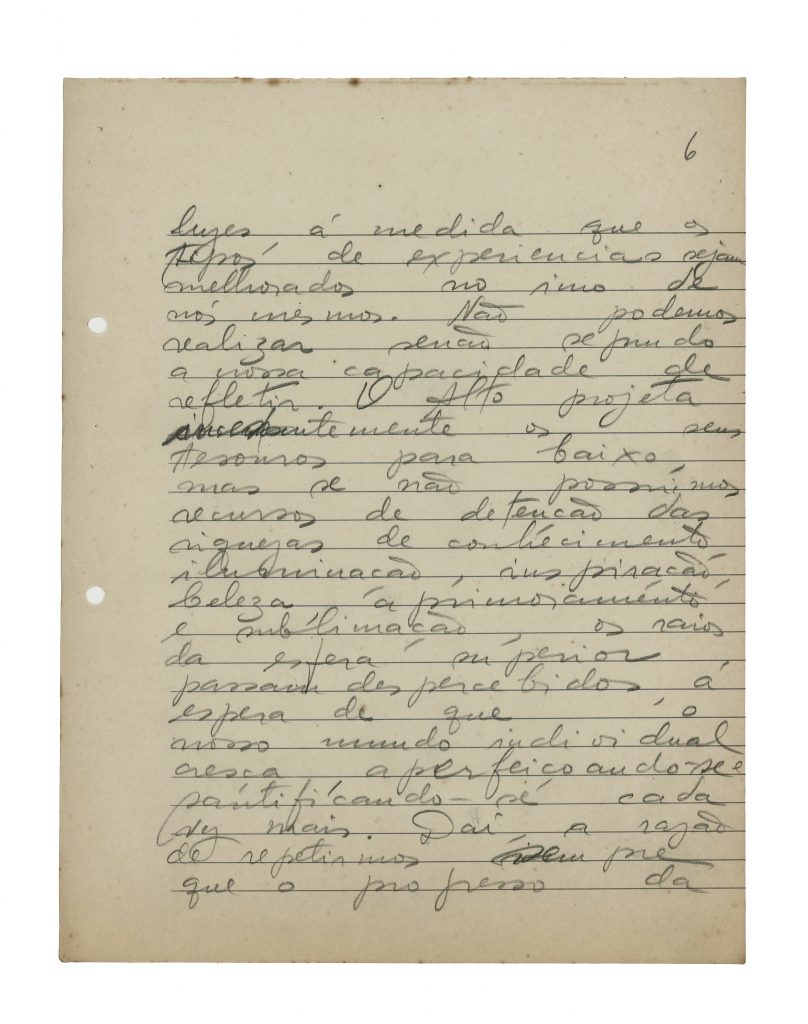 6
luzes á medida que os
tipos de experiencias sejam
melhorados no imo de
nós mesmos. Não podemos
realizar senão segundo
a nossa capacidade de
refletir. O Alto projeta
os seus
tesouros para baixo,
mas se não possuimos
recursos de detenção das
riquezas de conhecimento
iluminação, inspiração,
beleza aprimoramento
e sublimação, os raios
da esfera superior
passam despercebidos á
espera de que o
nosso mundo individual
cresça aperfeiçoando-se e
santificando-se cada
vez mais. Daí, a razão
de repetirmos sempre
que o progresso da